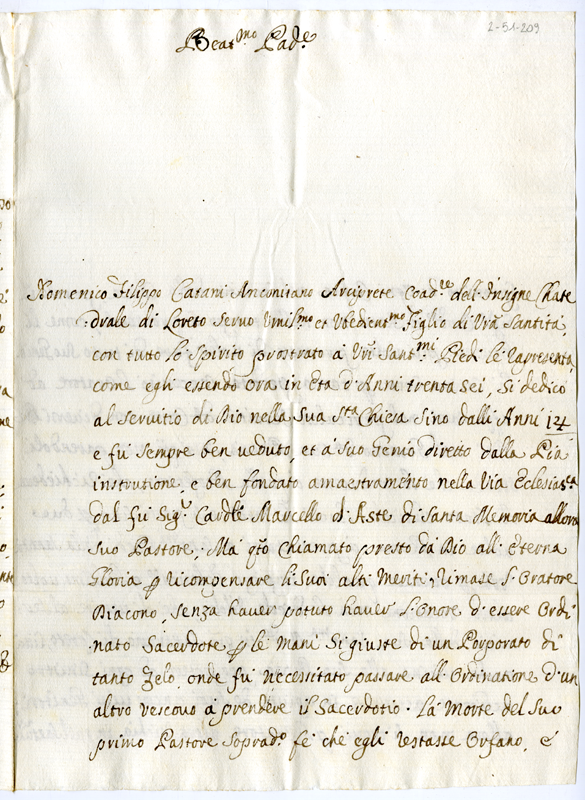 2-51-209
Beat.mo Pad.e
Domenico Filippo Catani Anconitano Arciprete Coad.re dell'Insigne Chate
drale di Loreto Servo Umil.mo et Ubedient.mo Figlio di Vr̃a Santità,
con tutto lo Spirito prostrato à Vr̃i Sant.mi Piedi le rapresenta,
come egli essendo ora in Età d'Anni trenta sei, si dedicò
al servitio di Dio nella sua S.ta Chiesa sino dalli Anni 14
e fù sempre ben veduto, et à suo Genio diretto dalla Pia
instrutione, e ben fondato amaestramento nella Via Eclesias.ca
dal fù Sig.r Cardle Marcello d'Aste di Santa Memoria allora
suo Pastore. Mà q̃to chiamato presto da Dio all'Eterna
Gloria p ricompensare li suoi alti Meriti, rimase l'Oratore
Diacono, senza haver potuto haver l'Onore d'essere Ordi
nato Sacerdote p le mani si giuste di un Porporato di
tanto Zelo, onde fù necessitato passare all'Ordinatione d'un
altro vescovo à prendere il Sacerdotio. La Morte del suo
primo Pastore soprad.o fè che egli restasse Orfano, e